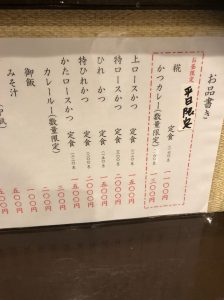 お品書き
お昼限定
平日限定
椛 定食 一一〇〇円
かつカレー(数量限定) 一三〇〇円
上ロースかつ 定食 一五〇〇円
特ロースかつ 定食 二〇〇〇円
ひれかつ 定食 一五〇〇円
特ひれかつ 定食 二〇〇〇円
かたロースかつ 定食
カレールー(数量限定)
御飯
みそ汁